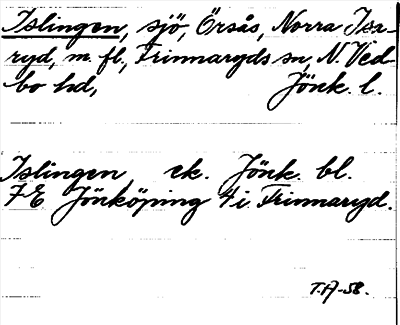 Islingen, sjö, Örsås, Norra Isa-
ryd, m. fl., Frinnaryds sn, N. Ved-
bo hd, Jönk. l.
Islingen ek. Jönk. bl.
7E Jönköping 4i Frinnaryd.
T.A-58.